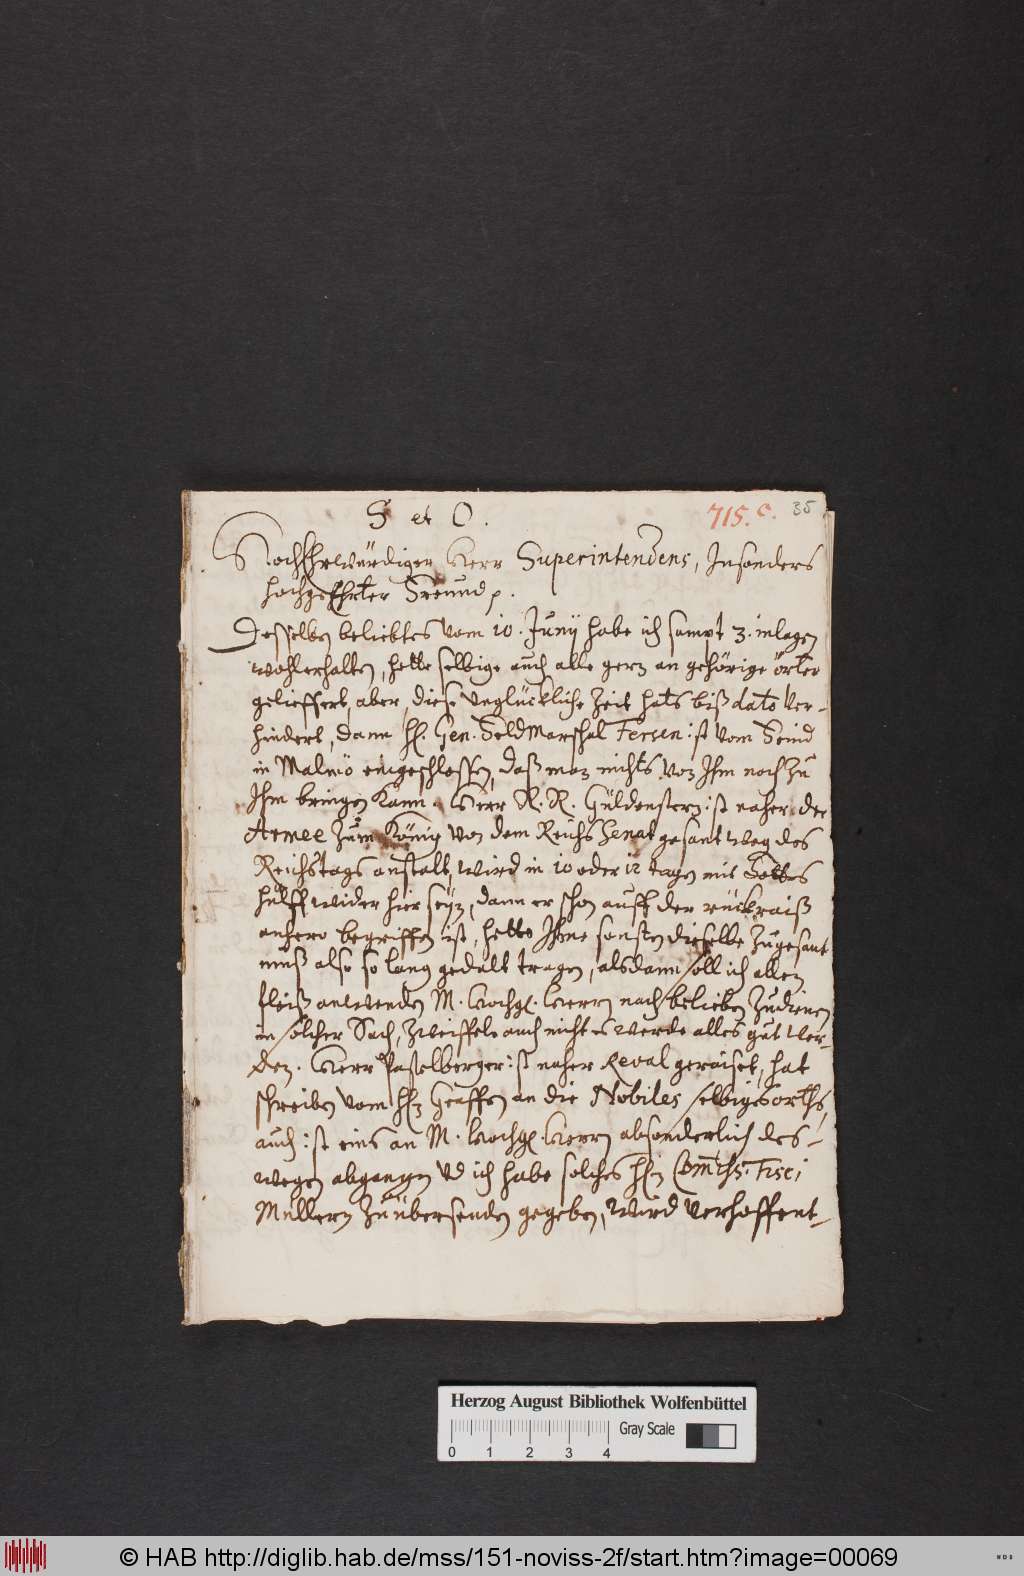 S et O.
715.c. 35
HochEhrwürdiger Herr Superintendens, Insonders
hochgeEhrter Freund p.
Desselben beliebtes vom 10. Junij habe ich sampt 3. inlagen
wohlerhalten, hette selbige auch alle gern an gehörige örter
geliefert, aber, diese unglückliche Zeit hats biß dato ver-
hindert, dann H. Gen. Feldmarschal Fersen ist vom Feind
in Malmö eingeschlossen, daß man nichts von Ihm noch zu
Ihm bringen kann. Herr R. R. Güldenstern ist naher der
Armee zum König von dem Reichs Senat gesant weg des
Reichstags anstalt, wird in 10 oder 12 tagen mit Gottes
hülff wider hier seyn, dann er schon auff der rückraiß
anhero begriffen ist, hette Ihme sonsten dieselbe zugesant
muß also so lang gedult tragen, alsdann soll ich allen
fleiß anwenden M. Hochg. Herrn nach belieben zudienen
in solcher Sach, zweiffele auch nicht es werde alles gut wer-
den. Herr Passelberger ist naher Reval geraiset, hat
schreiben vom Hn Graffen an die Nobiles selbiges orths,
auch ist eins an M. Hochg. Herrn absonderlich des-
wegen abgangen vd ich habe solches Hn Com̄is. Fisci
Müllern zuübersenden gegeben, wird verhoffent-
Herzog August Bibliothek Wolfenbüttel
0 1 2 3 4
Gray Scale
© HAB http://diglib.hab.de/mss/151-noviss-2f/start.htm?image=00069